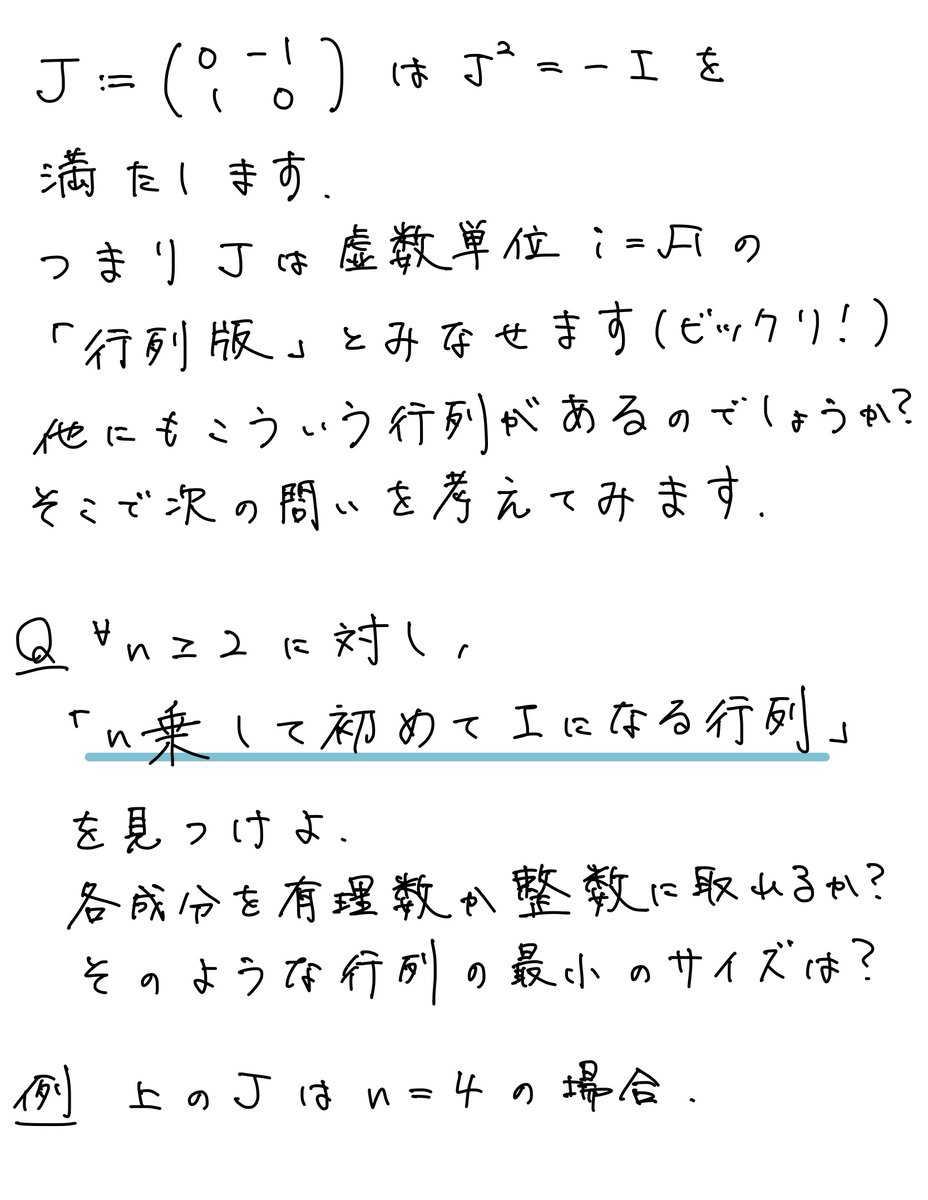 J := (0 -1
1 0) は J² = - I を
満たします.
つまり Jは虚数単位 i = √-1 の
「行列版」とみなせます(ビックリ!)
他にもこういう行列があるのでしょうか?
そこで次の問いを考えてみます.
Q ∀n ≥ 2 に対し,
「n乗して初めて I になる行列」
を見つけよ.
各成分を有理数か整数に取れるか?
そのような行列の最小のサイズは?
例 上のJはn = 4の場合.